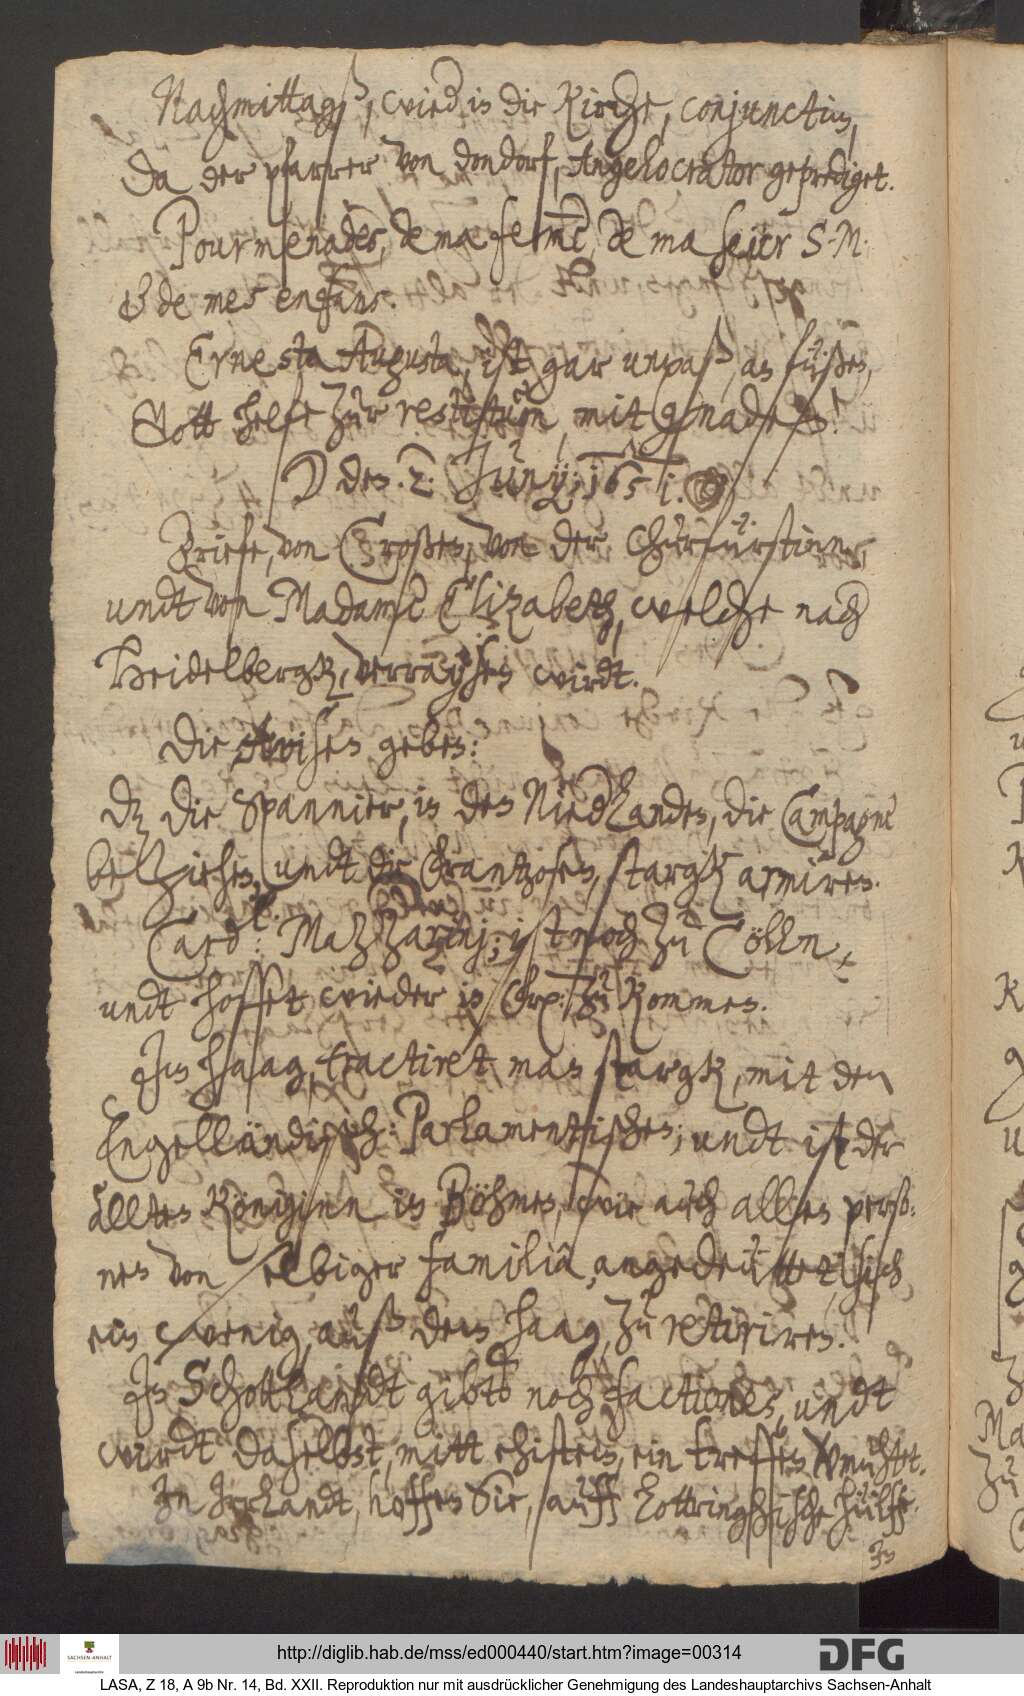 Nachmittagß, wied in die Kirche, conjunctim,
da der pfarrer von Dondorf, Angelocrator geprediget.
Pourmenades, de ma femme, de ma soeur S. M.
& de mes enfans.
Ernesta Augusta, ist gar unpaß, an füßen,
Gott helfe zur restitution, mit gnaden!
☽ den 2. Junÿ; 1651.
Briefe, von Croßen, von der Churfürstinn,
undt von Madame Elizabeth, welche nach
Heidelbergk, verräysen wirdt.
Die Avisen geben:
Daß die Spannier, in den Niederlanden, die Campagne
beziehen, undt die Frantzosen, stargk armiren.
Card.l: Mazzarinj; ist noch zu Cölln,
undt hoffet, wieder in Frkr: zu kommen.
Jm Haag, tractiret man stargk, mit den
Engelländisch: Parlamentischen; undt ist der
ällten Königinn in Böhmen, wie auch allen perso-
nen von selbiger familia, angedeüttet, sich
ein wenig, auß dem Haag, zu retiriren.
Jn Schottlandt gibts noch factiones, undt
wirdt daselbst, mitt ehistem, ein treffen vermuhtet.
Jn Jrrlandt, hoffen Sie, auff Lottringhische hülffe.
Jn
http://diglib.hab.de/mss/ed000440/start.htm?image=00314
DFG
SACHSEN-ANHALT
LASA, Z 18, A 9b Nr. 14, Bd. XXII. Reproduktion nur mit ausdrücklicher Genehmigung des Landeshauptarchivs Sachsen-Anhalt